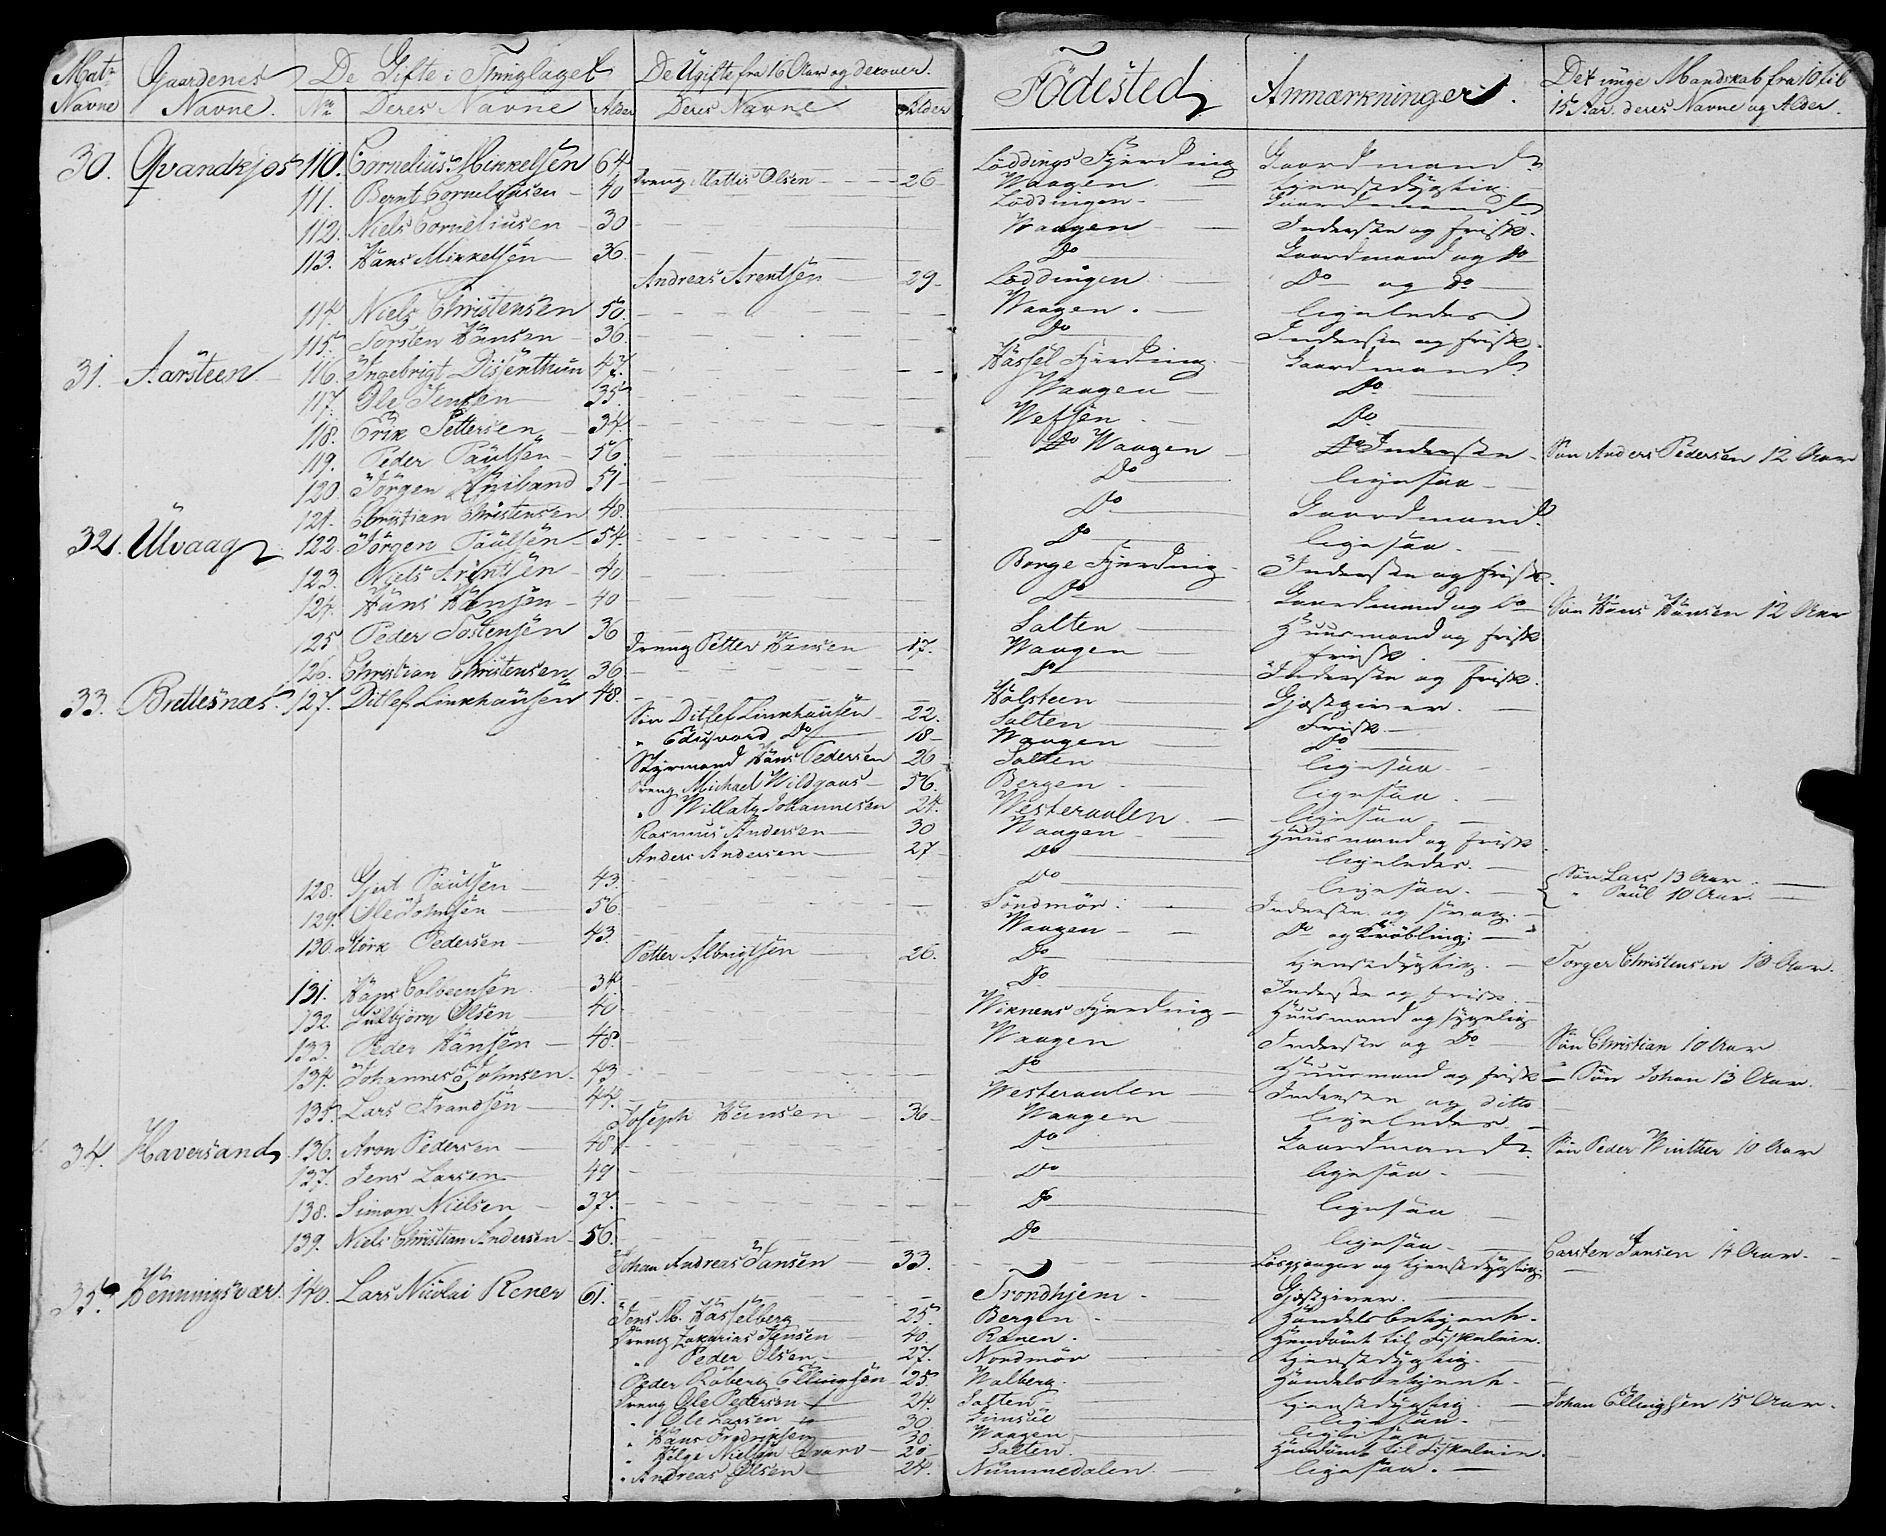 Mat: Navne | Gaardenes Navne. | De Gifte i Thinglaget | De Ugifte fra 16 Aar og derover. | Födested | Anmærkninger. | Det unge Mandskab fra 10 til 15 Aar. deres Navne og Alder.
Nr | Deres Navne | Alder | Deres Navne | Alder
30. Qvandkjos 110. Cornelius Mikkelsen 64 Löddings Fjerding Gaardmand
Dreng Mattis Olsen 26 Waagen tjenstdygtig
111. Bernt Corneliusen 40 Löddingen Gaardmand
112. Niels Corneliusen 30 Waagen Inderste og frisk.
113. Hans Mikkelsen 36. Do Gaardmand og Do
Andreas Arentsen 29 Löddingen Do og Do
114. Niels Christensen 50. Waagen. ligeledes
115. Torsten Hansen 36. Do Inderste og frisk.
31. Aarsteen 116. Ingebrigt Disenthun 47. Hassel Fjerding Gaardmand
117. Ole Jensen 35 Waagen Do
118. Erik Pettersen 34 Wefsen Do
119. Peder Paulsen 56. Waagen Inderste Søn Anders Pedersen 12 Aar
120. Jörgen Kniband 51 Do ligesaa
121. Christian Christensen 48. Do Gaardmand
32. Ulvaag 122. Jörgen Paulsen 54. Do ligesaa
123. Niels Arentsen 40 Borge Fjerding Inderste og frisk.
124. Hans Hansen 40 Do Gaardmand og Do Søn Hans Hansen 12 Aar
125 Peder Tostensen 36 Salten Huusmand og frisk
Dreng Petter Hansen 17. Waagen frisk.
126. Christian Christensen 36 Do Inderste og frisk.
33. Brettesnæs. 127. Ditlef Linkhausen 48. Holsteen Gjæstgiver.
Søn Ditlef Linkhausen 22. Salten Frisk
" Edvard Do 18 Waagen Do
Styrmand Hans Pedersen 26 Salten ligesaa
Dreng Michael Wildgaas 56. Bergen ligesaa.
" Willatz Johannesen 24. Westeraalen ligesaa
Rasmus Andersen 30 Waagen Huusmand og frisk
Anders Andersen 27 Do ligeledes.
128. Gjert Paulsen 43. Do ligesaa. Søn Lars 13 Aar.
" Paul 10 Aar.
129. Ole Johnsen 56. Söndmör. Inderste og svag.
130. Störk Pedersen 43. Waagen Do og Kröbling.
Petter Albrigtsen 26. Do tjenstdygtig. Torger Christensen 13 Aar.
131. Hans Colbeensen 34 Do Inderste og frisk.
132. Gulbjörn Olsen 40 Wiknens Fjerding Huusmand og sygelig
133. Peder Hansen 48. Waagen Inderste og Do Søn Christian 10 Aar
134. Johannes Johnsen 43 Do Huusmand og frisk Søn Johan 13 Aar.
135. Lars Frandsen 44. Westeraalen Inderste og ditto
Joseph Hansen 36 Waagen ligeledes.
34. Haversand 136. Aron Pedersen 48 Do Gaardmand Søn Peder Winther 10 Aar
137. Jens Larsen 49 Do ligesaa
138. Simon Nielsen 37. Do ligesaa
139. Niels Christian Andersen 56. Do ligesaa. Carsten Jansen 14 Aar.
Johan Andreas Jansen 33. Lösgjænger og tjenstdygtig.
35. Henningsvær. 140. Lars Nicolai Rener 61. Trondhjem. Gjæstgiver.
Jens M. Hasselberg 25 Bergen. Handelsbetjent.
Dreng Zakarias Jensen 40. Ranen. Henvömt til Fiskeleie.
" Peder Olsen 27. Nordmör tjenstdygtig.
Peder Röberg Ellingsen 25 Walberg. Handelsbetjent.
Dreng Ole Pedersen 24. Salten tjenstdygtig. Johan Ellingsen 15 Aar.
" Ole Larsen 30 ligesaa.
" Hans Fredriksen 30 Waagen ligesaa
" Helge Nielsen 20 Salten. til Fiskeleie.
" Andreas Olsen 24. Nummedalen. ligesaa.